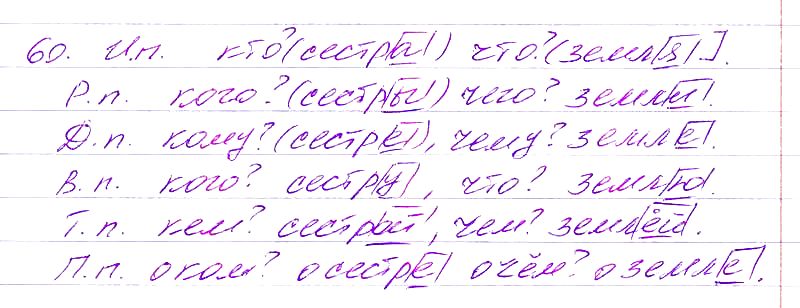 60. И.п. кто? (сестра) что? (земля).
Р.п. кого? (сестры) чего? земли.
Д.п. кому? (сестре), чему? земле.
В.п. кого? сестру, что? землю.
Т.п. кем? сестрой, чем? землёй.
П.п. о ком? о сестре о чём? о земле.